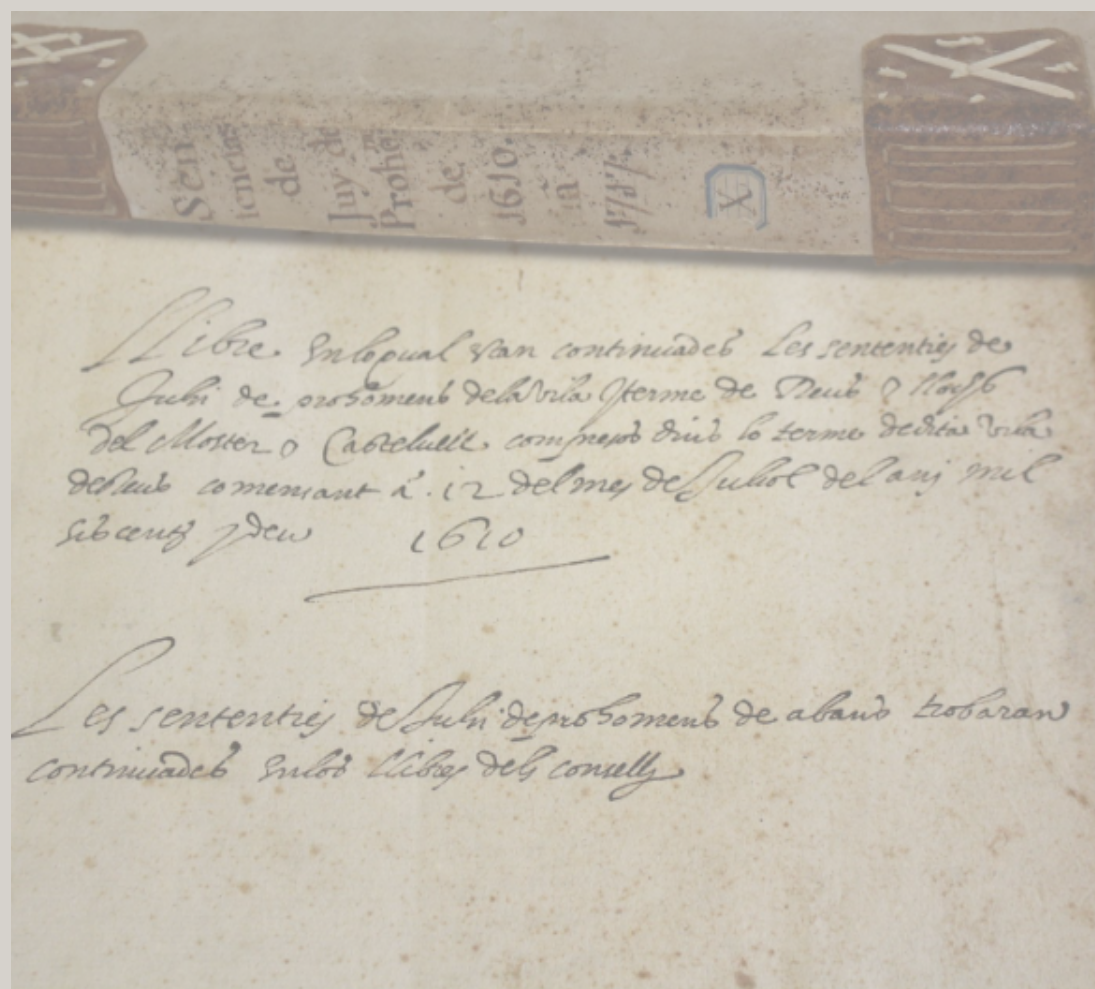 Sen
tencias
de
Juy de
Prohe
de
1610.
ia
1717.
X
Llibre En lo qual van continuades Les sententies de
Juhi de prohomens de la vila y terme de Reus y llochs
del Moster y Castelvell compresos dins lo terme de dita vila
de Reus comensant à 12 del mes de Juliol del any mil
siscents y deu 1610
Les sententies de Juhi de prohomens de abans trobaran
continuades En los llibres dels consells